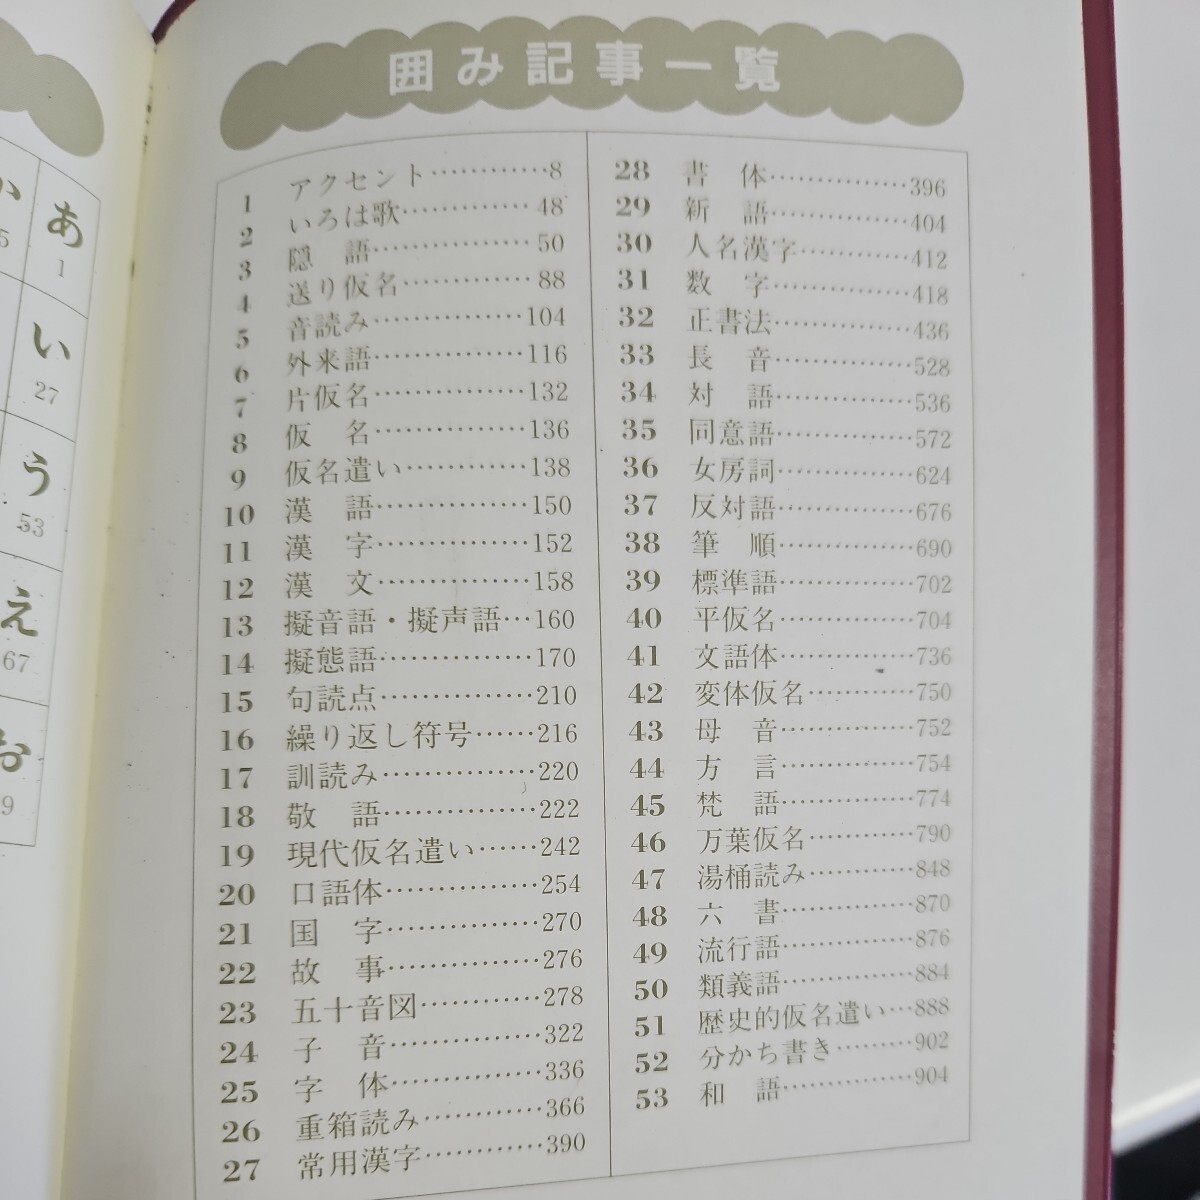 囲み記事一覧
1 アクセント…………8
2 いろは歌…………48
3 隠語…………50
4 送り仮名…………88
5 音読み…………104
6 外来語…………116
7 片仮名…………132
8 仮名…………136
9 仮名遣い…………138
10 漢語…………150
11 漢字…………152
12 漢文…………158
13 擬音語・擬声語…160
14 擬態語…………170
15 句読点…………210
16 繰り返し符号……216
17 訓読み…………220
18 敬語…………222
19 現代仮名遣い……242
20 口語体…………254
21 国字…………270
22 故事…………276
23 五十音図…………278
24 子音…………322
25 字体…………336
26 重箱読み…………366
27 常用漢字…………390
28 書体…………396
29 新語…………404
30 人名漢字…………412
31 数字…………418
32 正書法…………436
33 長音…………528
34 対語…………536
35 同意語…………572
36 女房詞…………624
37 反対語…………676
38 筆順…………690
39 標準語…………702
40 平仮名…………704
41 文語体…………736
42 変体仮名…………750
43 母音…………752
44 方言…………754
45 梵語…………774
46 万葉仮名…………790
47 湯桶読み…………848
48 六書…………870
49 流行語…………876
50 類義語…………884
51 歴史的仮名遣い…888
52 分かち書き………902
53 和語…………904
あ
1
い
27
う
53
え
67
お
か